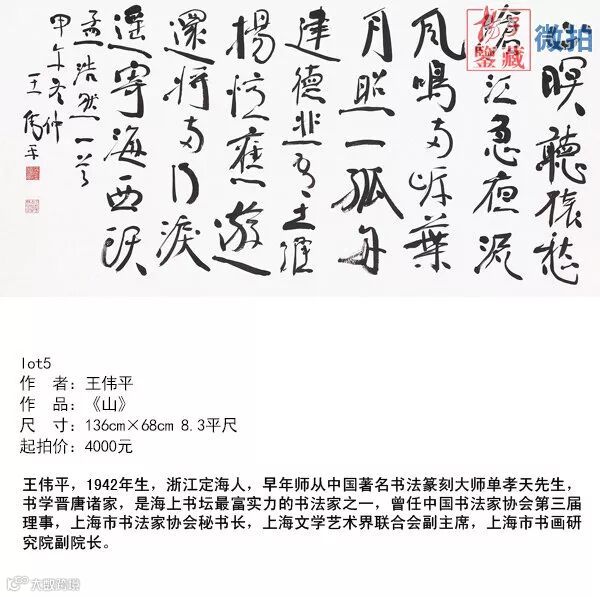 山暝聽猿愁
滄江急夜流
風鳴兩岸葉
月照一孤舟
建德非吾土維
揚憶舊遊
還將兩行淚
遙寄海西頭
孟浩然一首
甲午冬仲
王偉平
鑒藏
微拍
lot5
作 者：王伟平
作 品：《山》
尺 寸：136cm×68cm 8.3平尺
起拍价：4000元
王伟平，1942年生，浙江定海人，早年师从中国著名书法篆刻大师单孝天先生，
书学晋唐诸家，是海上书坛最富实力的书法家之一，曾任中国书法家协会第三届
理事，上海市书法家协会秘书长，上海文学艺术界联合会副主席，上海市书画研
究院副院长。
大数跨境